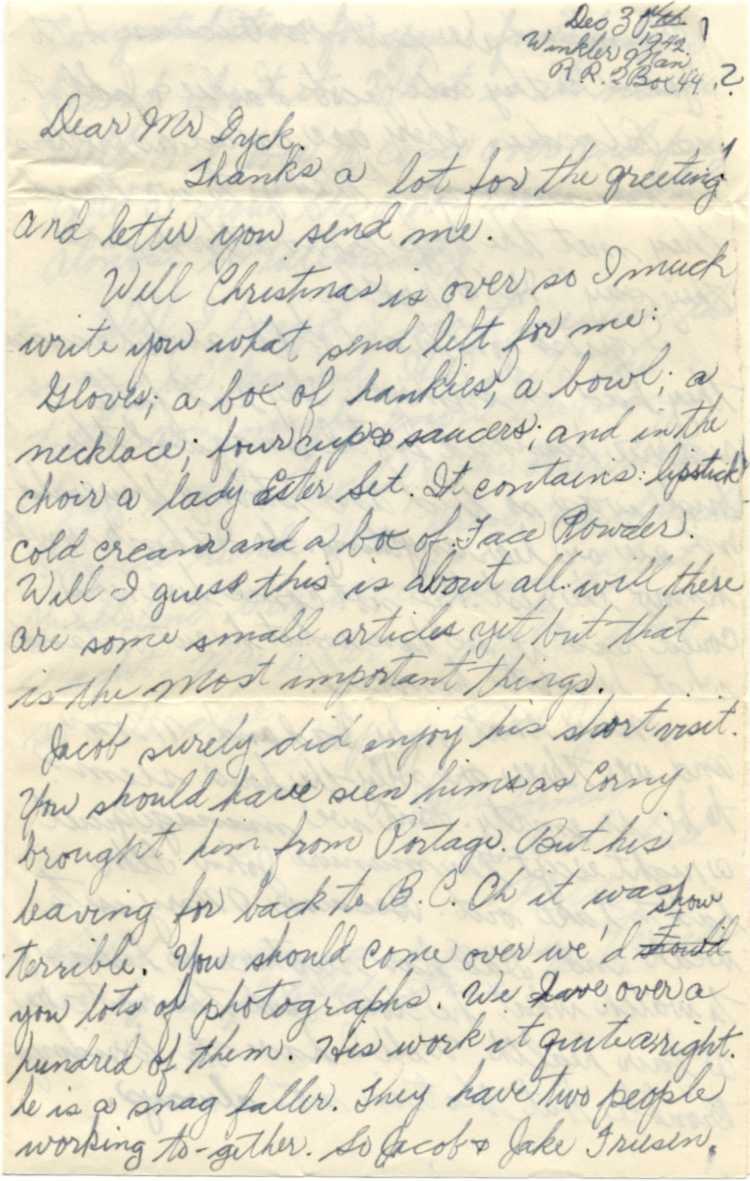 Dec 30th
1942
Winkler Man
R.R. 2 Box 44.
Dear Mr Dyck.
Thanks a lot for the greeting
and letter you send me.
Well Christmas is over so I much
write you what send left for me:
Gloves; a box of hankies; a bowl; a
necklace; four cups & saucers; and in the
choir a lady Ester Set. It contains: lipstick
cold cream and a box of Face Powder.
Well I guess this is about all. will there
are some small articles yet but that
is the most important things.
Jacob surely did enjoy his short visit.
You should have seen him as Corny
brought him from Portage. But his
leaving for back to B.C. Oh it was
terrible. You should come over we'd show
you lots of photographs. We have over a
hundred of them. His work it quite aright.
he is a snag faller. They have two people
working to-gether. So Jacob & Jake Friesen.